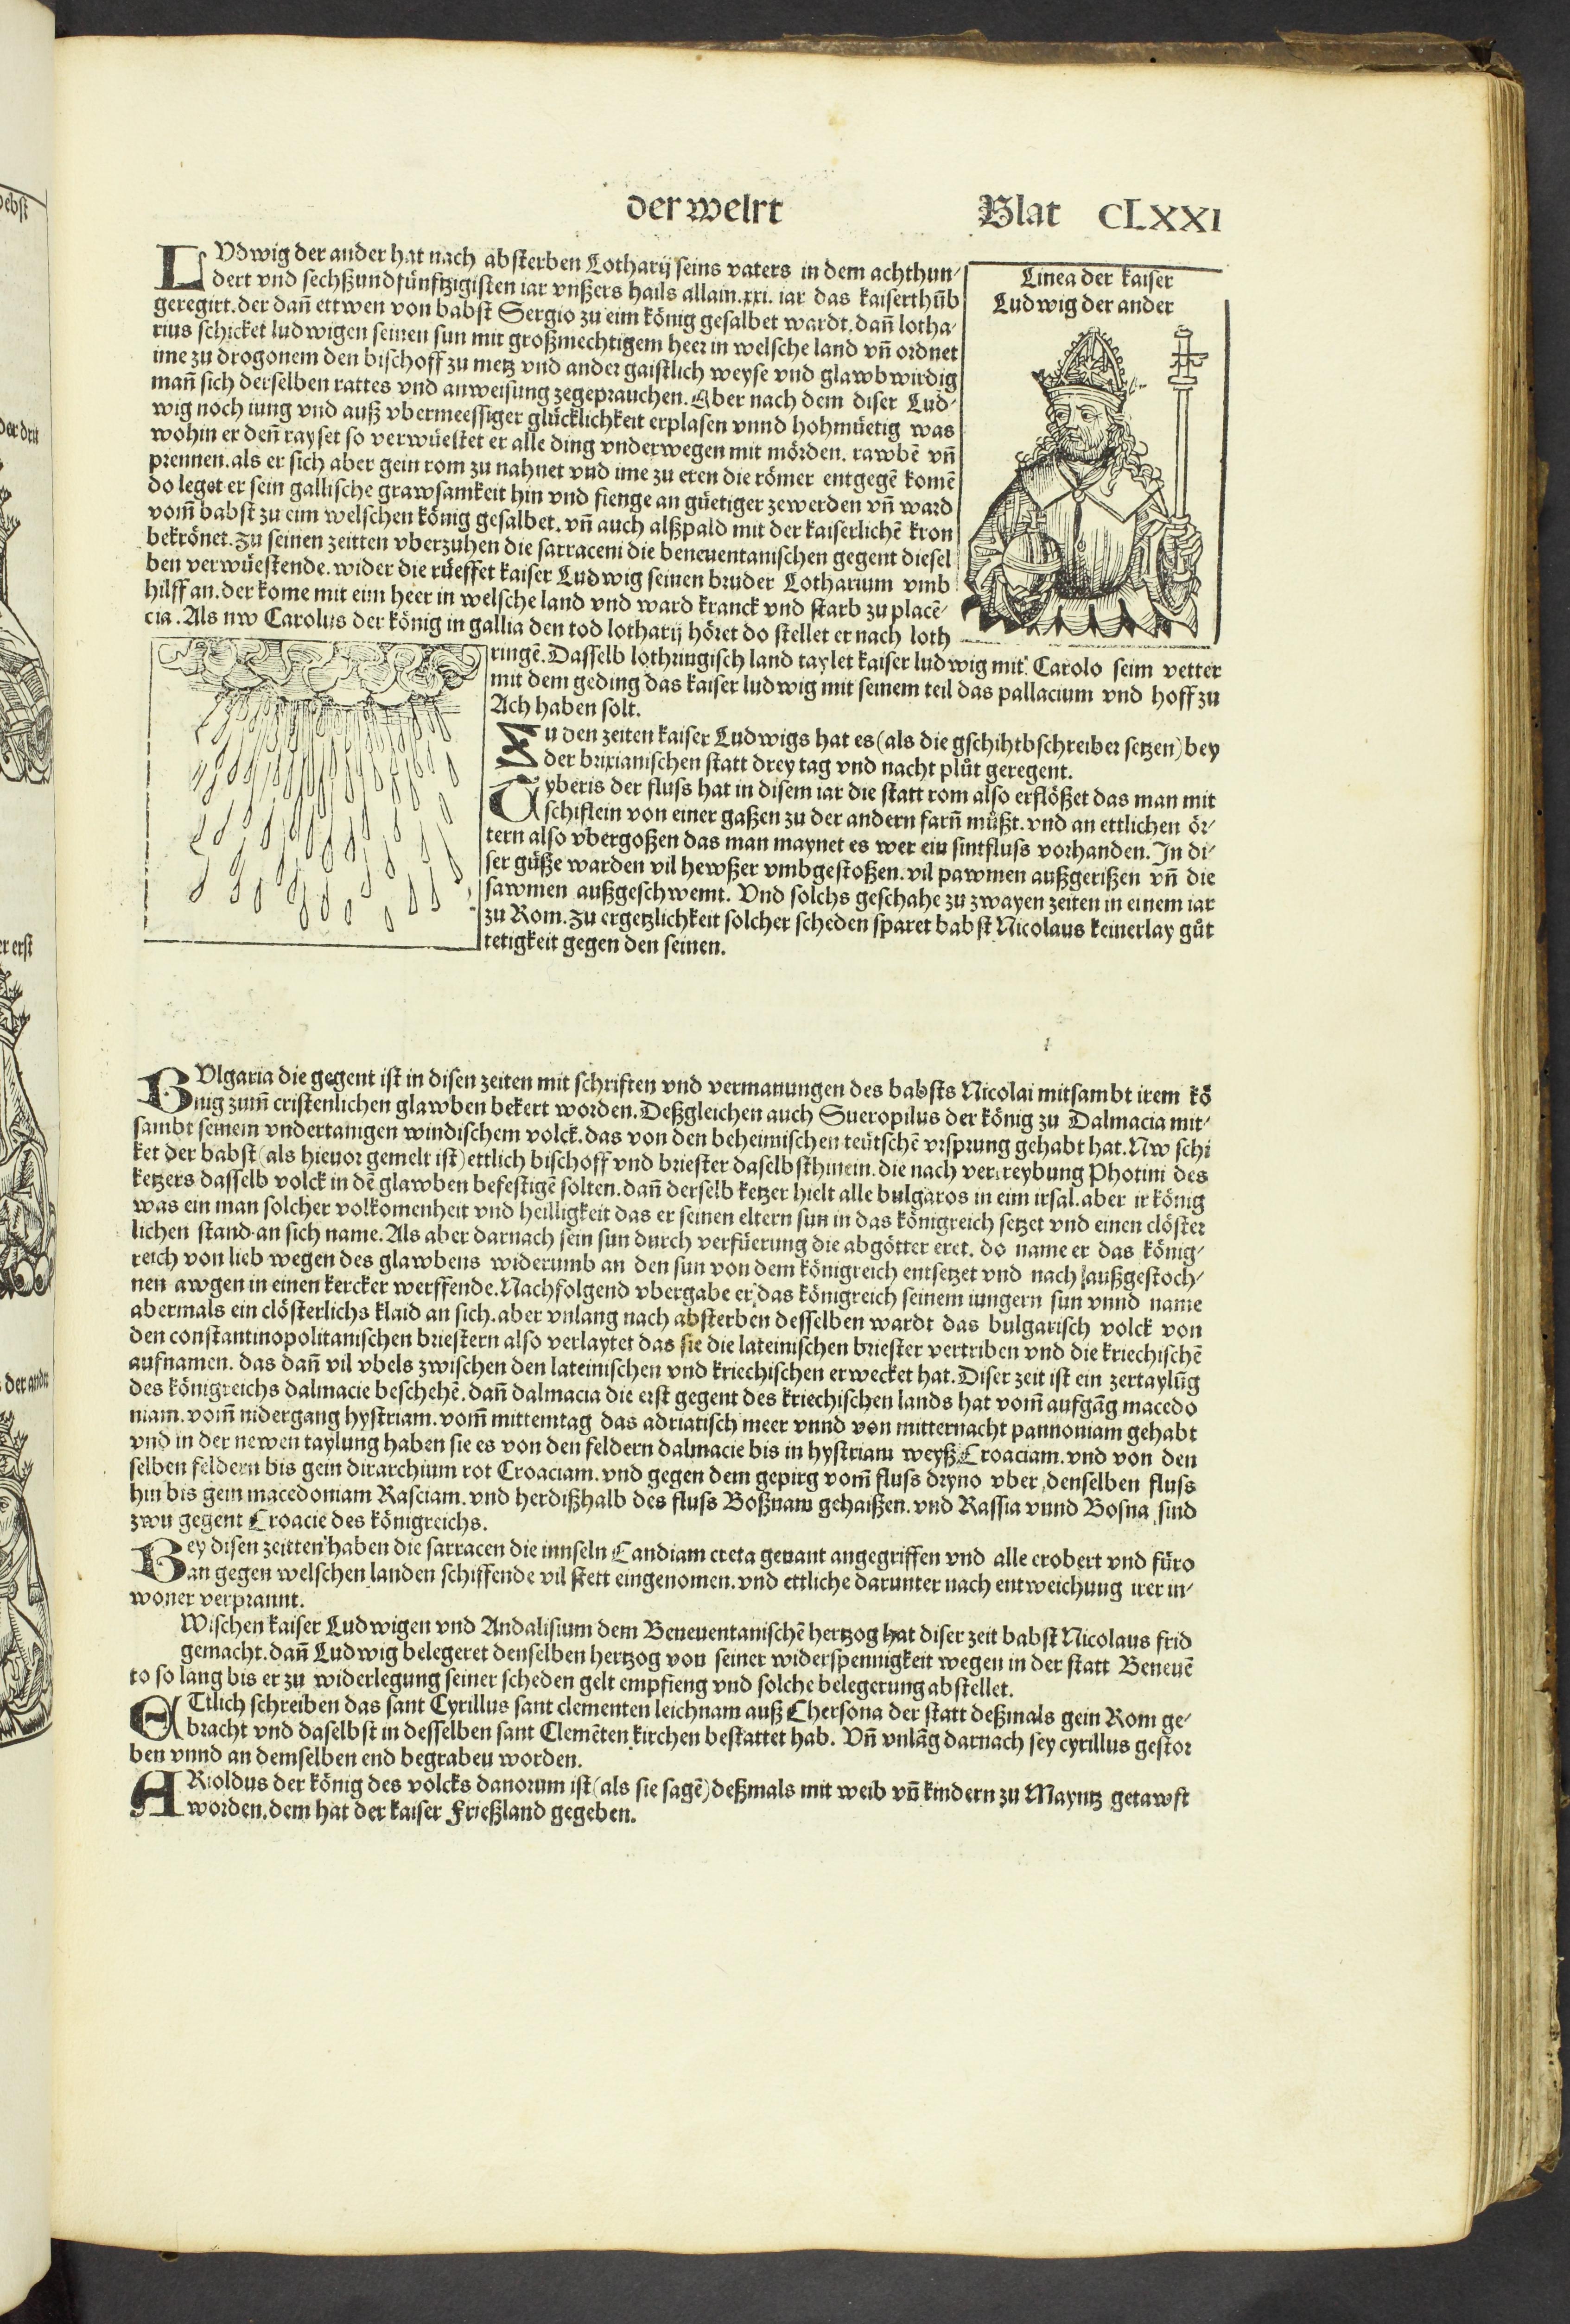 der welrt
Blat CLXXI
LVdwig der ander hat nach absterben Lotharij seins vaters in dem achthun-
dert vnd sechßundfünftzigisten iar vnßers hails allain .xxi. iar das kaiserthüb
geregirt. der dañ ettwen von babst Sergio zu eim könig gesalbet wardt. dañ lotha-
rius schicket ludwigen seinen sun mit großmechtigem heer in welsche land vñ ordnet
ime zu drogonem den bischoff zu metz vnd ander gaistlich weyse vnd glawbwirdig
mañ sich derselben rattes vnd anweisung zegeprauchen. Aber nach dem diser Lud-
wig noch iung vnd auß vbermeessiger glücklichkeit erplasen vnnd hohmüetig was
wohin er deñ rayset so verwüestet er alle ding vnderwegen mit mörden. rawbē vñ
prennen. als er sich aber gein rom zu nahnet vnd ime zu eren die römer entgegē komē
do leget er sein gallische grawsamkeit hin vnd fienge an güetiger zewerden vñ ward
vom̄ babst zu eim welschen könig gesalbet. vñ auch alßpald mit der kaiserlichē kron
bekrönet. Zu seinen zeitten vberzuhen die sarraceni die beneuentanischen gegent diesel
ben verwüestende. wider die rüeffet kaiser Ludwig seinen bruder Lotharium vmb
hilff an. der kome mit eim heer in welsche land vnd ward kranck vnd starb zu placē-
cia. Als nw Carolus der könig in gallia den tod lotharij höret do stellet er nach loth
Linea der kaiser
Ludwig der ander
ringē. Dasselb lothringisch land taylet kaiser ludwig mit Carolo seim vetter
mit dem geding das kaiser ludwig mit seinem teil das pallacium vnd hoff zu
Ach haben solt.
Zu den zeiten kaiser Ludwigs hat es (als die gschihtbschreiber setzen) bey
der brixianischen statt drey tag vnd nacht plůt geregent.
Tyberis der fluss hat in disem iar die statt rom also erflößet das man mit
schiflein von einer gaßen zu der andern farñ müßt. vnd an ettlichen ör-
tern also vbergoßen das man maynet es wer ein sintfluss vorhanden. In di-
ser güße warden vil hewßer vmbgestoßen. vil pawmen außgerißen vñ die
sawmen außgeschwemt. Vnd solchs geschahe zu zwayen zeiten in einem iar
zu Rom. Zu ergetzlichkeit solcher scheden sparet babst Nicolaus keinerlay gůt
tetigkeit gegen den seinen.
BVlgaria die gegent ist in disen zeiten mit schriften vnd vermanungen des babsts Nicolai mitsambt irem kö
nig zum̄ cristenlichen glawben bekert worden. Deßgleichen auch Sueropilus der könig zu Dalmacia mit-
sambt seinem vndertanigen windischem volck. das von den beheimischen teütschē vrsprung gehabt hat. Nw schi
ket der babst (als hieuor gemelt ist) ettlich bischoff vnd briester daselbsthinein. die nach vertreybung Photini des
ketzers dasselb volck in dē glawben befestigē solten. dañ derselb ketzer hielt alle bulgaros in eim irsal. aber ir könig
was ein man solcher volkomenheit vnd heilligkeit das er seinen eltern sun in das königreich setzet vnd einen clöster
lichen stand an sich name. Als aber darnach sein sun durch verfüerung die abgötter eret. do name er das könig-
reich von lieb wegen des glawbens widerumb an den sun von dem königreich entsetzet vnd nach außgestoch-
nen awgen in einen kercker werffende. Nachfolgend vbergabe er das königreich seinem iungern sun vnnd name
abermals ein clösterlichs klaid an sich. aber vnlang nach absterben desselben wardt das bulgarisch volck von
den constantinopolitanischen briestern also verlaytet das sie die lateinischen briester vertriben vnd die kriechischē
aufnamen. das dañ vil vbels zwischen den lateinischen vnd kriechischen erwecket hat. Diser zeit ist ein zertaylūg
des königreichs dalmacie beschehē. dañ dalmacia die erst gegent des kriechischen lands hat vom̄ aufgāg macedo
niam. vom̄ nidergang hystriam. vom̄ mittemtag das adriatisch meer vnnd von mitternacht pannoniam gehabt
vnd in der newen taylung haben sie es von den feldern dalmacie bis in hystriam weyß Croaciam. vnd von den
selben feldern bis gein dirarchium rot Croaciam. vnd gegen dem gepirg vom̄ fluss dryno vber denselben fluss
hin bis gein macedoniam Rasciam. vnd herdißhalb des fluss Boßnam gehaißen. vnd Rassia vnnd Bosna sind
zwu gegent Croacie des königreichs.
Bey disen zeitten haben die sarracen die innseln Candiam creta genant angegriffen vnd alle erobert vnd füro
an gegen welschen landen schiffende vil stett eingenomen. vnd ettliche darunter nach entweichung irer in-
woner verprannt.
Wischen kaiser Ludwigen vnd Andalisium dem Beneuentanischē hertzog hat diser zeit babst Nicolaus frid
gemacht. dañ Ludwig belegeret denselben hertzog von seiner widerspennigkeit wegen in der statt Beneuē
to so lang bis er zu widerlegung seiner scheden gelt empfieng vnd solche belegerung abstellet.
ETtlich schreiben das sant Cyrillus sant clementen leichnam auß Chersona der statt deßmals gein Rom ge-
bracht vnd daselbst in desselben sant Clemēten kirchen bestattet hab. Vñ vnlāg darnach sey cyrillus gestor
ben vnnd an demselben end begraben worden.
ARioldus der könig des volcks danorum ist (als sie sagē) deßmals mit weib vñ kindern zu Mayntz getawft
worden. dem hat der kaiser Frießland gegeben.